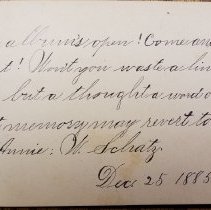 album's open! Come and
! Won't you waste a lin
but a thought a word o
memory may revert to
Annie. W. Schatz
Dec 25 1885